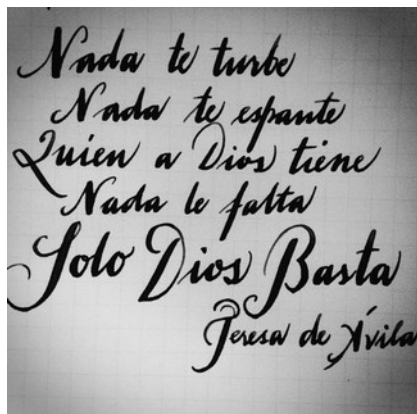 Nada te turbe
Nada te espante
Quien a Dios tiene
Nada le falta
Solo Dios Basta
Teresa de Ávila